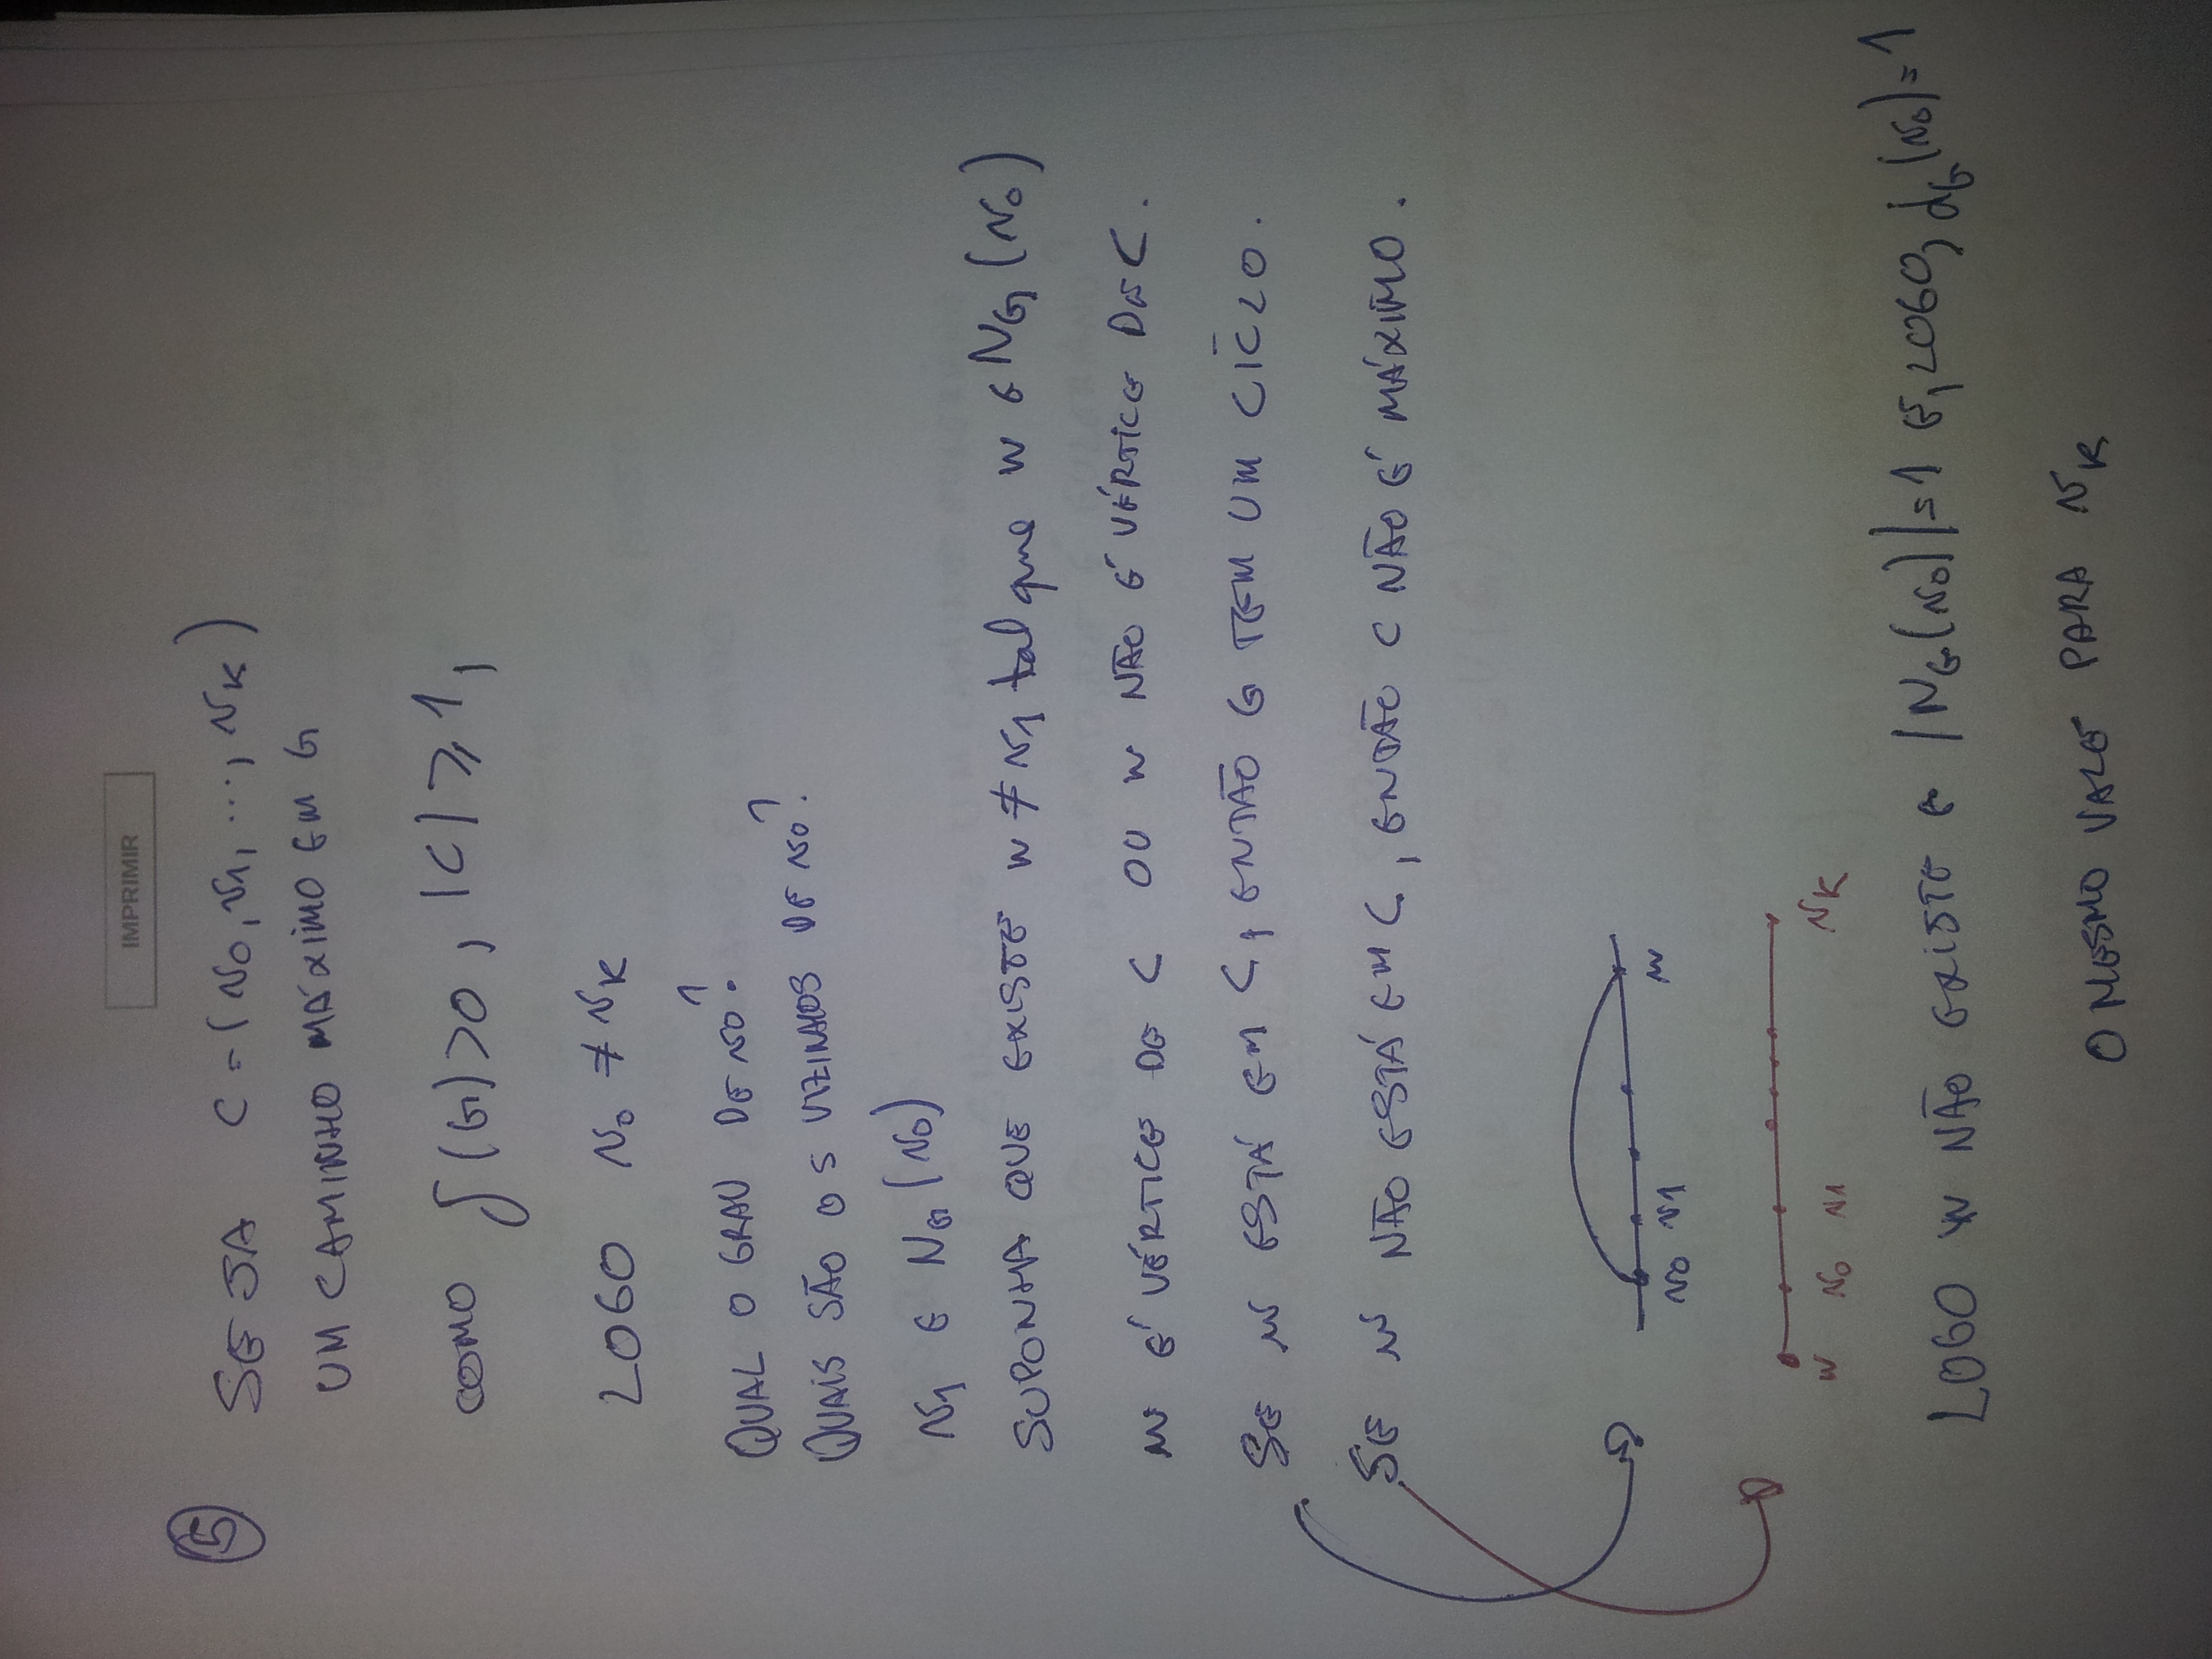 IMPRIMIR
⑤ SEJA C = (v0, v1, ..., vK)
UM CAMINHO MÁXIMO EM G
COMO δ(G) > 0, |C| ⩾ 1,
LOGO v0 ≠ vK
QUAL O GRAU DE v0?
QUAIS SÃO OS VIZINHOS DE v0?
v1 ∈ NG(v0)
SUPONHA QUE EXISTE w ≠ v1 tal que w ∈ NG(v0)
w É VÉRTICE DE C OU w NÃO É VÉRTICE DE C.
SE w ESTÁ EM C, ENTÃO G TEM UM CICLO.
SE w NÃO ESTÁ EM C, ENTÃO C NÃO É MÁXIMO.
v0 v1 w
w v0 v1 vK
LOGO w NÃO EXISTE E |NG(v0)| = 1 E, LOGO, dG(v0) = 1
O MESMO VALE PARA vK